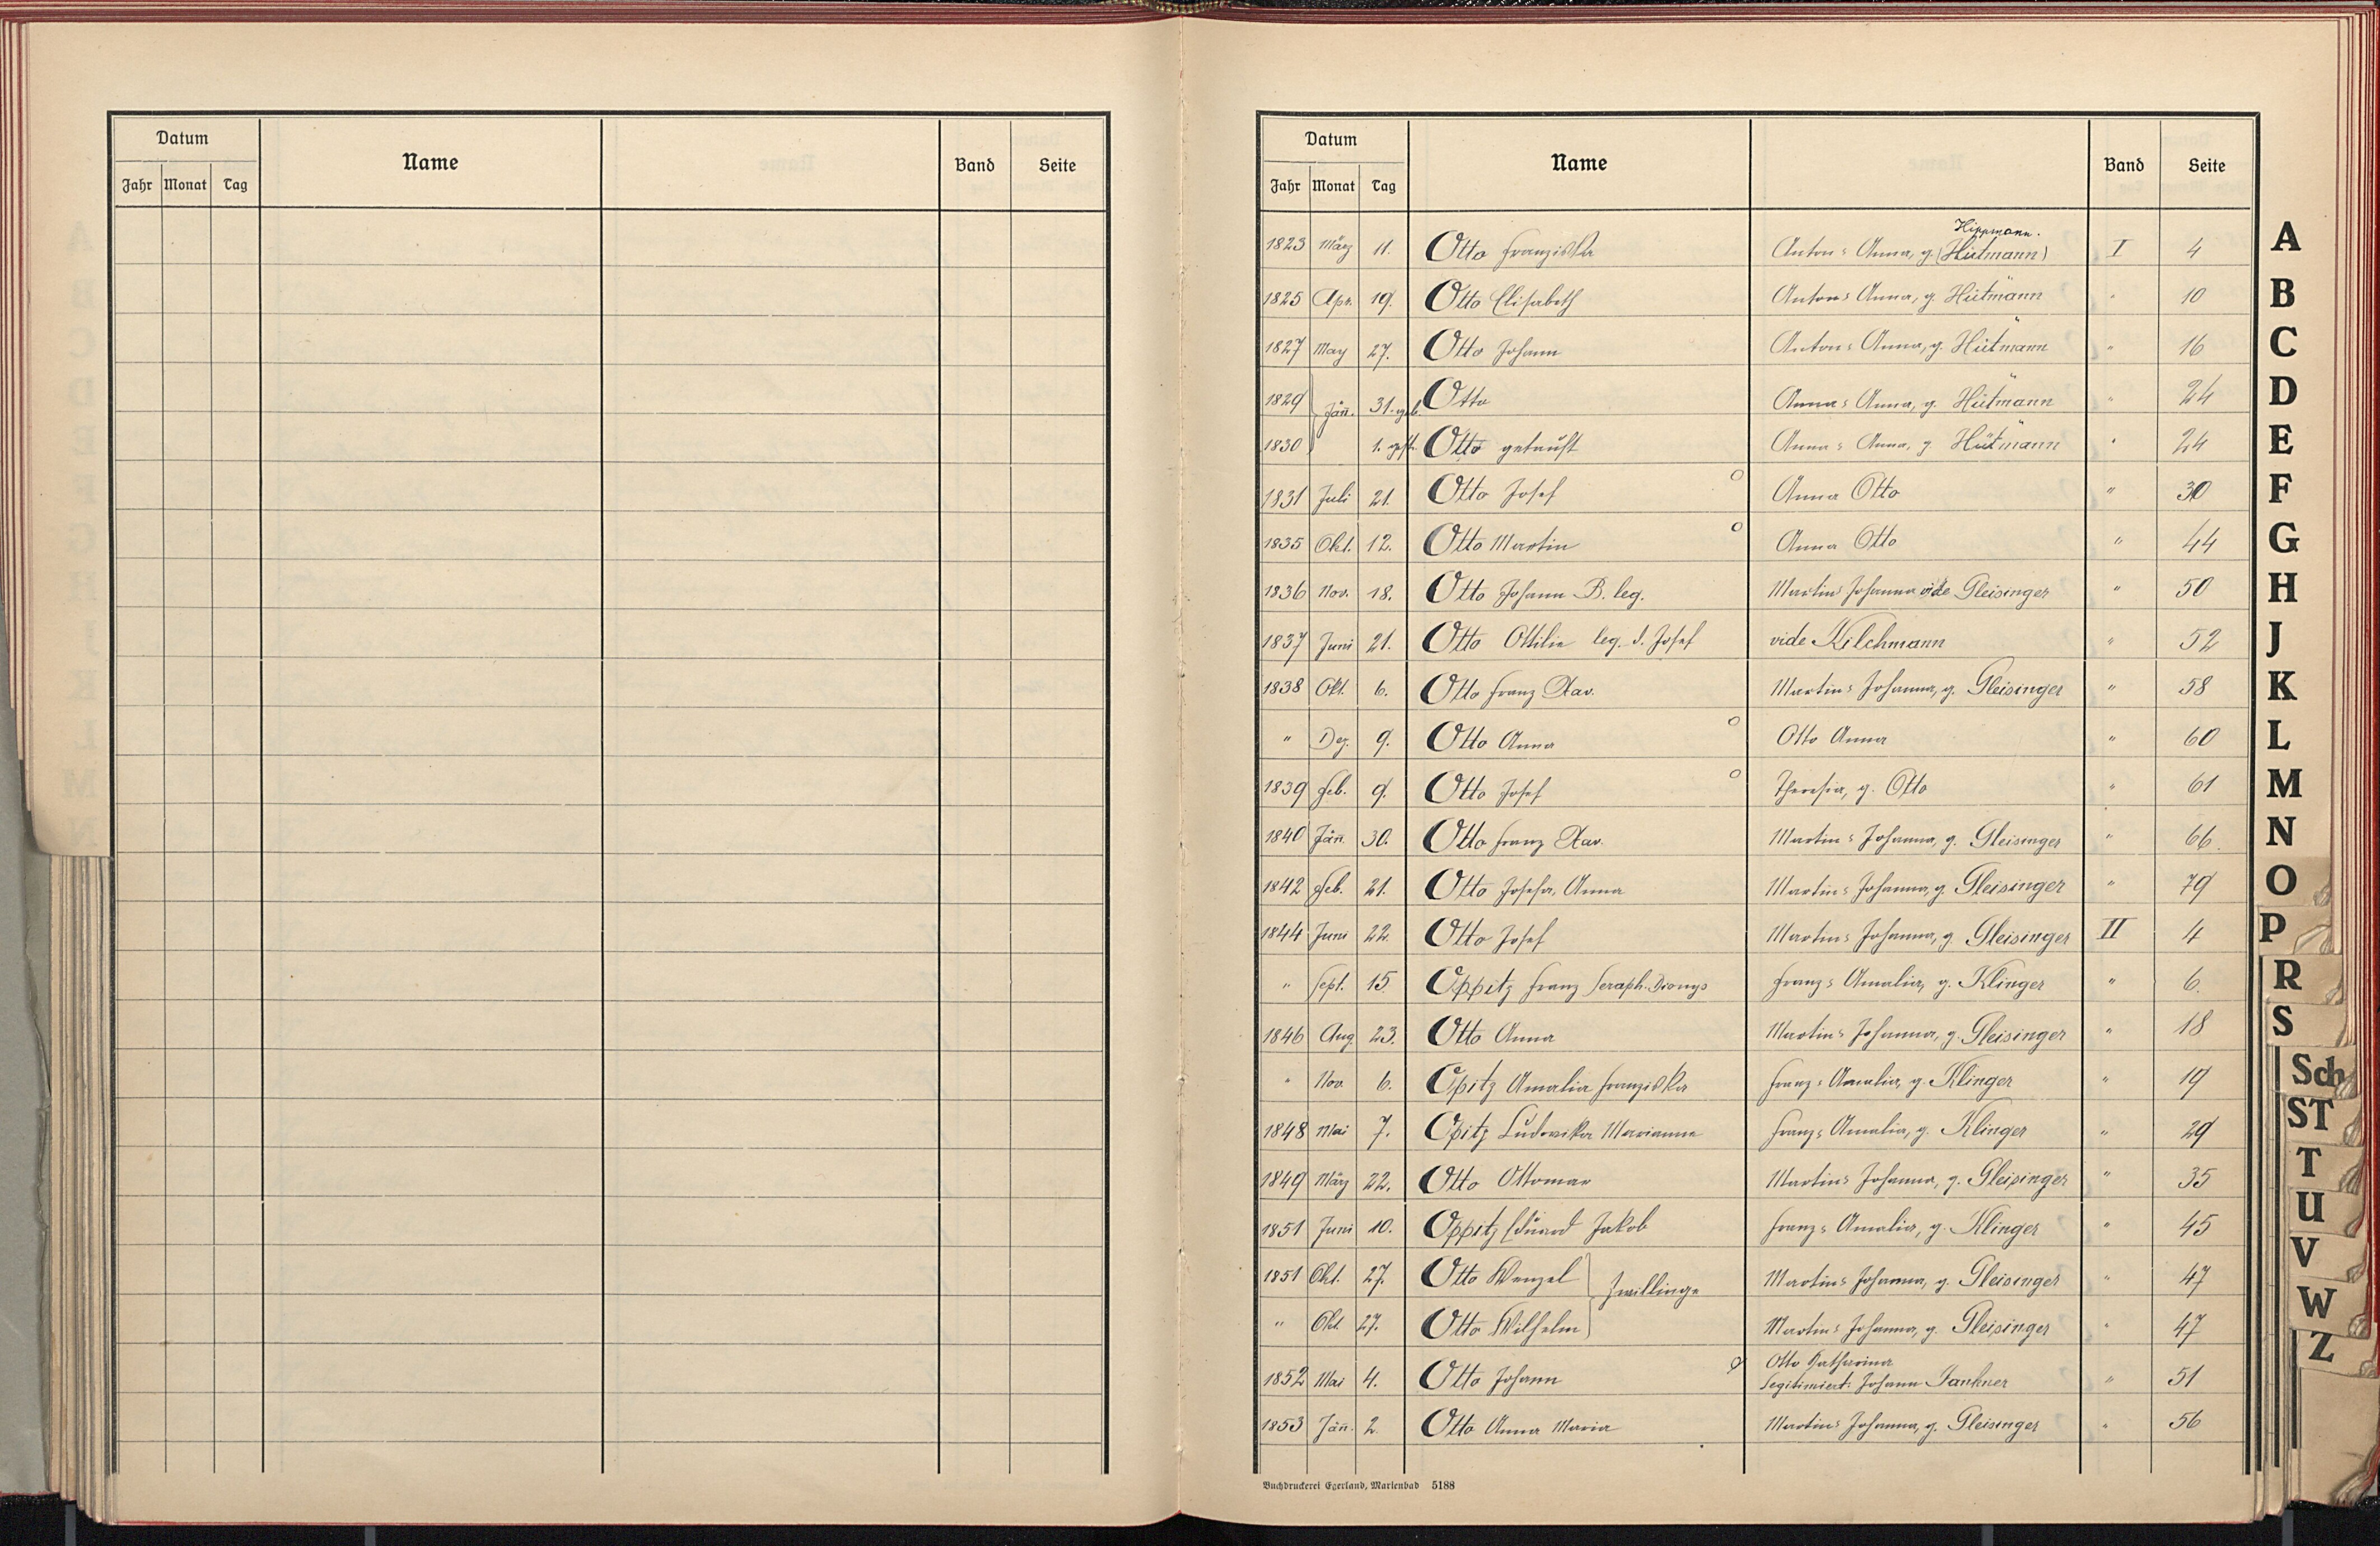 Datum Name Band Seite
Jahr Monat Tag
Datum Name Band Seite
Jahr Monat Tag
Hippmann.
1823 März 11. Otto Franziska Anton : Anna, g. (Hütmann) I 4
1825 Apr. 19. Otto Elisabeth Anton : Anna, g. Hütmann " 10
1827 May 27. Otto Johann Anton : Anna, g. Hütmann " 16
1829 Jän. 31. geb. Otto Anna : Anna, g. Hütmann " 24
1830 1. Otto getauft Anna : Anna, g Hütmann " 24
1831 Juli 21. Otto Josef o Anna Otto " 30
1835 Okt. 12. Otto Martin o Anna Otto " 44
1836 Nov. 18. Otto Johann B. leg. Martin : Johanna vide Gleisinger " 50
1837 Juni 21. Otto Ottilie leg. d. Josef vide Kilchmann " 52
1838 Okt. 6. Otto Franz Xav. Martin : Johanna, g. Gleisinger " 58
" Dez. 9. Otto Anna o Otto Anna " 60
1839 Feb. 9. Otto Josef o Theresia, g. Otto " 61
1840 Jän. 30. Otto Franz Xav. Martin : Johanna, g. Gleisinger " 66.
1842 Feb. 21. Otto Josefa, Anna Martin : Johanna, g. Gleisinger " 79
1844 Juni 22. Otto Josef Martin : Johanna, g Gleisinger II 4
" Sept. 15 Oppitz Franz Seraph. Dionys Franz : Amalia, g. Klinger " 6.
1846 Aug. 23. Otto Anna Martin : Johanna, g. Gleisinger " 18
" Nov. 6. Opitz Amalia Franziska Franz : Amalia, g. Klinger " 19
1848 Mai 7. Opitz Ludovika Marianne Franz : Amalia, g. Klinger " 29
1849 März 22. Otto Ottomar Martin : Johanna, g. Gleisinger " 35
1851 Juni 10. Oppitz Eduard Jakob Franz : Amalia, g. Klinger " 45
1851 Okt. 27. Otto Wenzel Zwillinge Martin : Johanna, g. Gleisinger " 47
" Okt. 27. Otto Wilhelm Martin : Johanna, g. Gleisinger " 47
Otto Katharina
1852 Mai 4. Otto Johann Legitimiert: Johann Jankner " 51
1853 Jän. 2. Otto Anna Maria Martin : Johanna, g. Gleisinger " 56
Buchdruckerei Egerland, Marienbad 5188
A
B
C
D
E
F
G
H
J
K
L
M
N
O
P
R
S
Sch
ST
T
U
V
W
Z